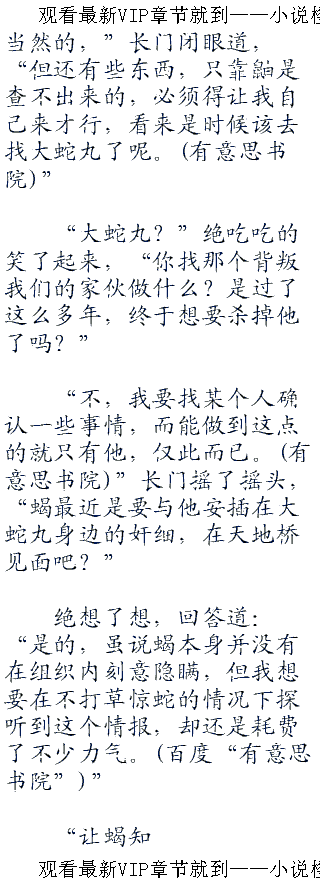 观看最新VIP章节就到——小说楼
当然的，”长门闭眼道，
“但还有些东西，只靠鼬是
查不出来的，必须得让我自
己来才行，看来是时候该去
找大蛇丸了呢。(有意思书
院)”
“大蛇丸？”绝吃吃的
笑了起来，“你找那个背叛
我们的家伙做什么？是过了
这么多年，终于想要杀掉他
了吗？”
“不，我要找某个人确
认一些事情，而能做到这点
的就只有他，仅此而已。(有
意思书院)”长门摇了摇头，
“蝎最近是要与他安插在大
蛇丸身边的奸细，在天地桥
见面吧？”
绝想了想，回答道：
“是的，虽说蝎本身并没有
在组织内刻意隐瞒，但我想
要在不打草惊蛇的情况下探
听到这个情报，却还是耗费
了不少力气。(百度“有意思
书院”)”
“让蝎知
观看最新VIP章节就到——小说楼